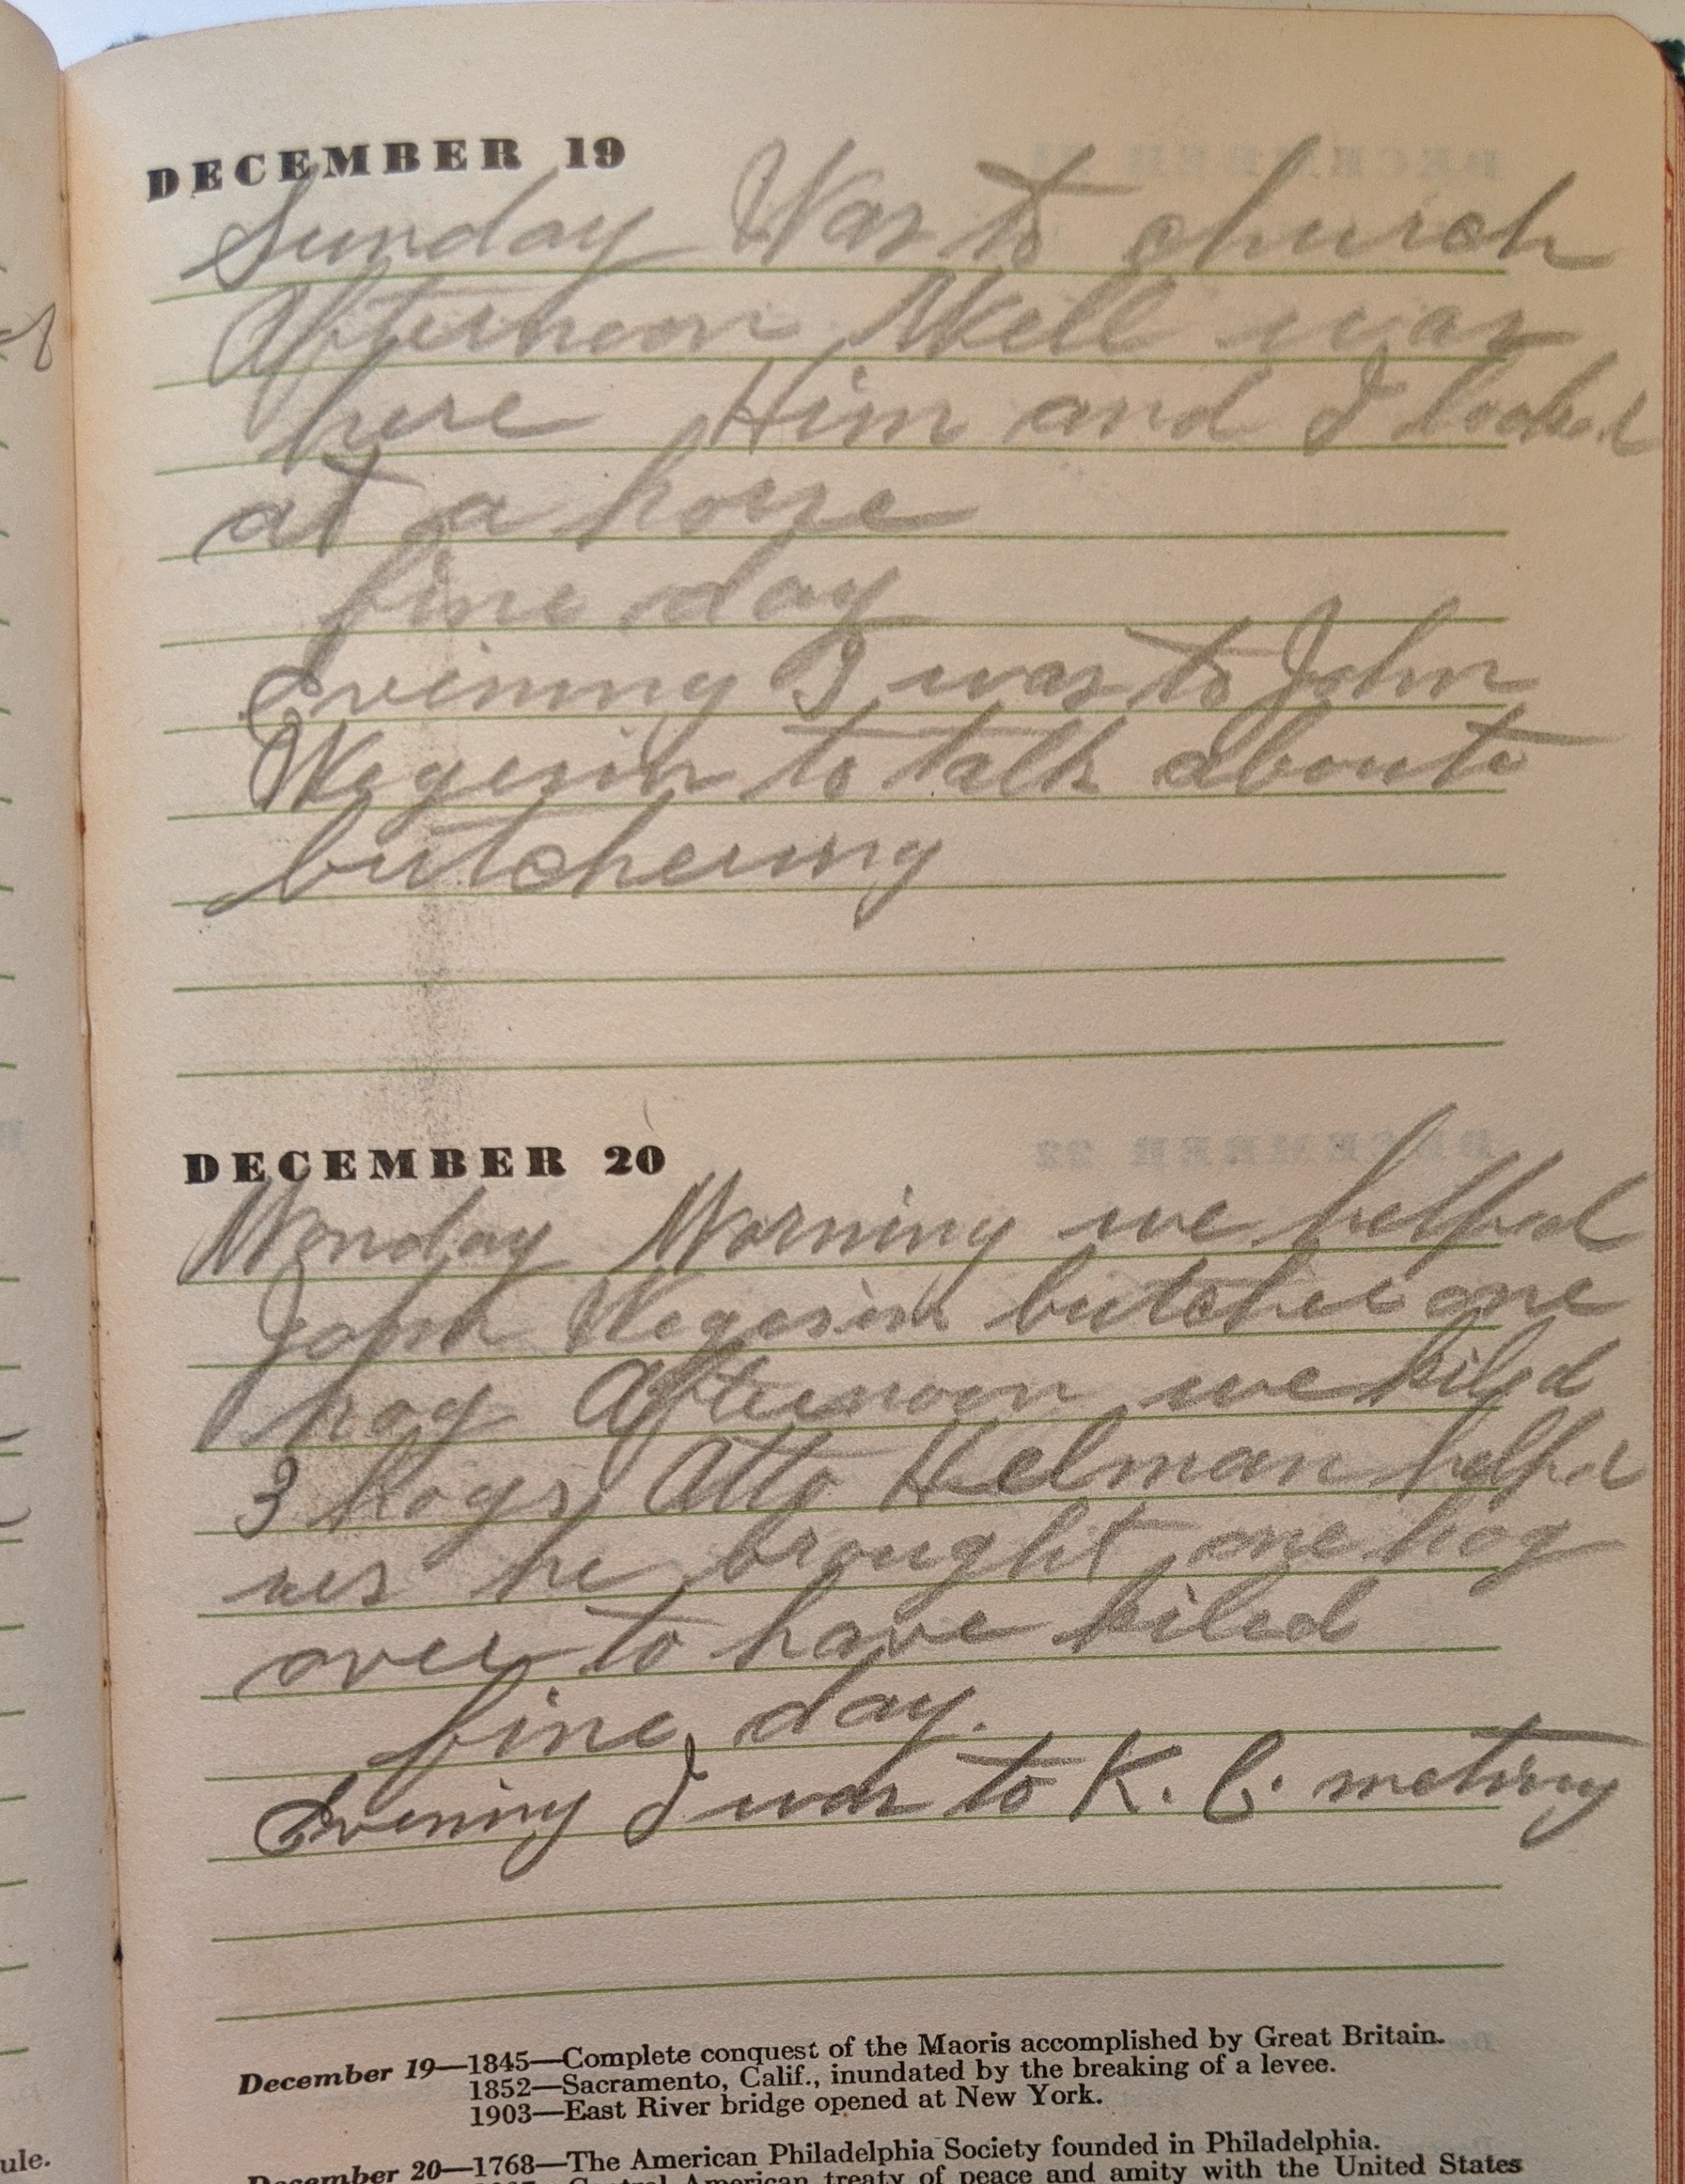 DECEMBER 19
Sunday Was to church
Afternoon Nell was
here Him and I looked
at a horse
fine day
Evening I was to John
Wegesin to talk about
butchering
DECEMBER 20
Monday Morning we helped
Wegesin butcher one
hog Afternoon we kiled
3 hogs Otto Helman helped
us he brought one hog
over to have kiled
fine day.
Evening I was to K. C. meting
December 19—1845—Complete conquest of the Maoris accomplished by Great Britain.
1852—Sacramento, Calif., inundated by the breaking of a levee.
1903—East River bridge opened at New York.
December 20—1768—The American Philadelphia Society founded in Philadelphia.
Central American treaty of peace and amity with the United States
ule.